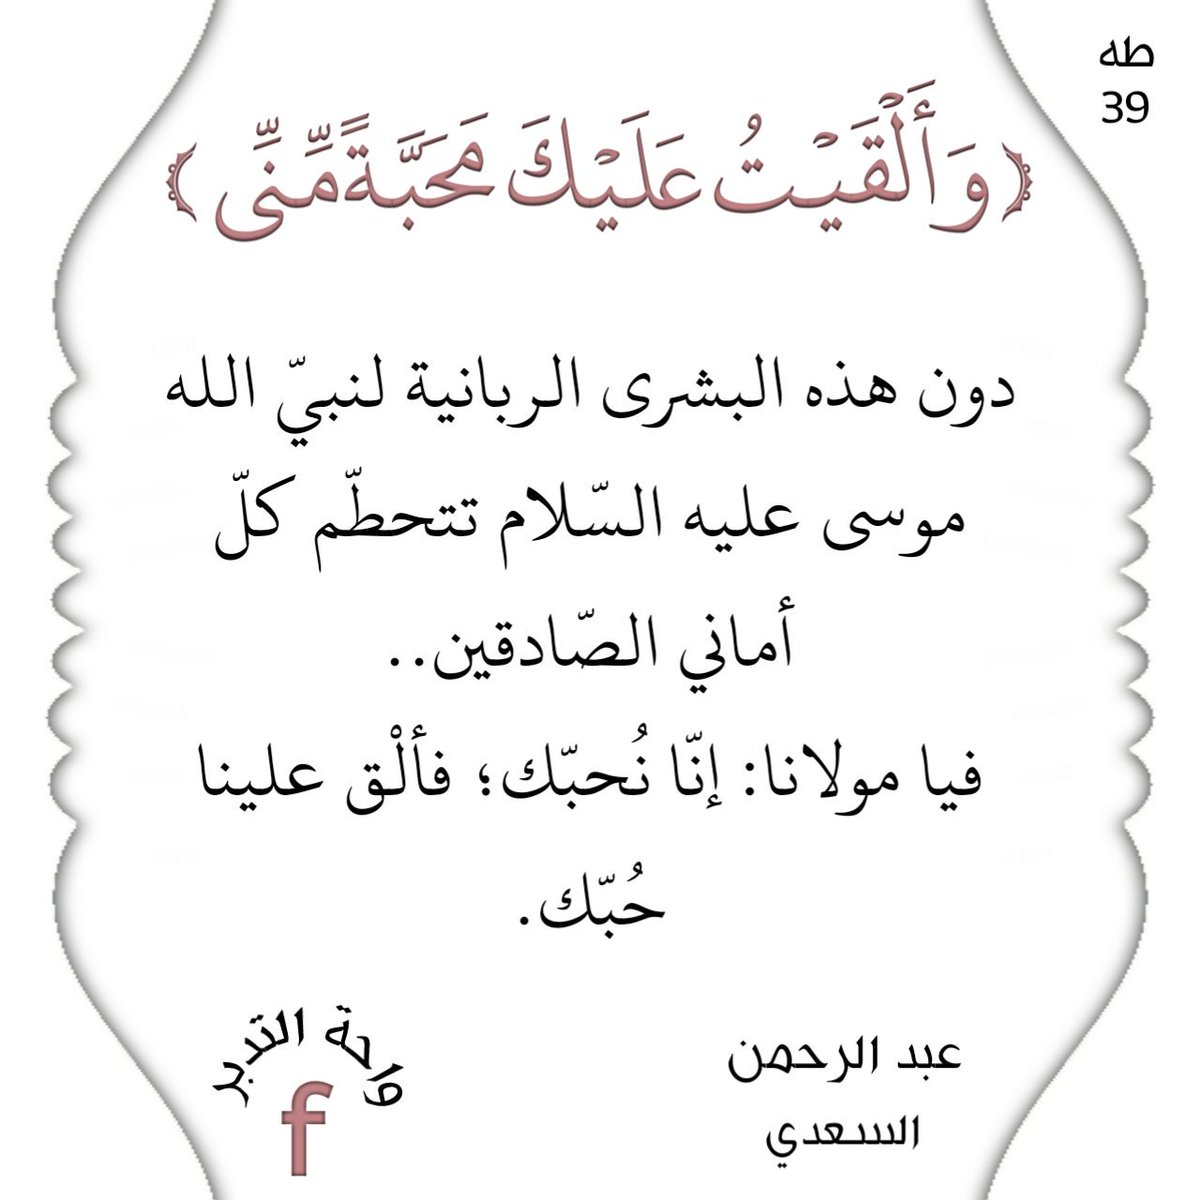 طه
39
﴿وَأَلْقَيْتُ عَلَيْكَ مَحَبَّةً مِّنِّي﴾
دون هذه البشرى الربانية لنبيّ الله
موسى عليه السّلام تتحطّم كلّ
أماني الصّادقين..
فيا مولانا: إنّا نُحبّك؛ فألْق علينا
حُبّك.
عبد الرحمن
السعدي
واحة التدبر
f